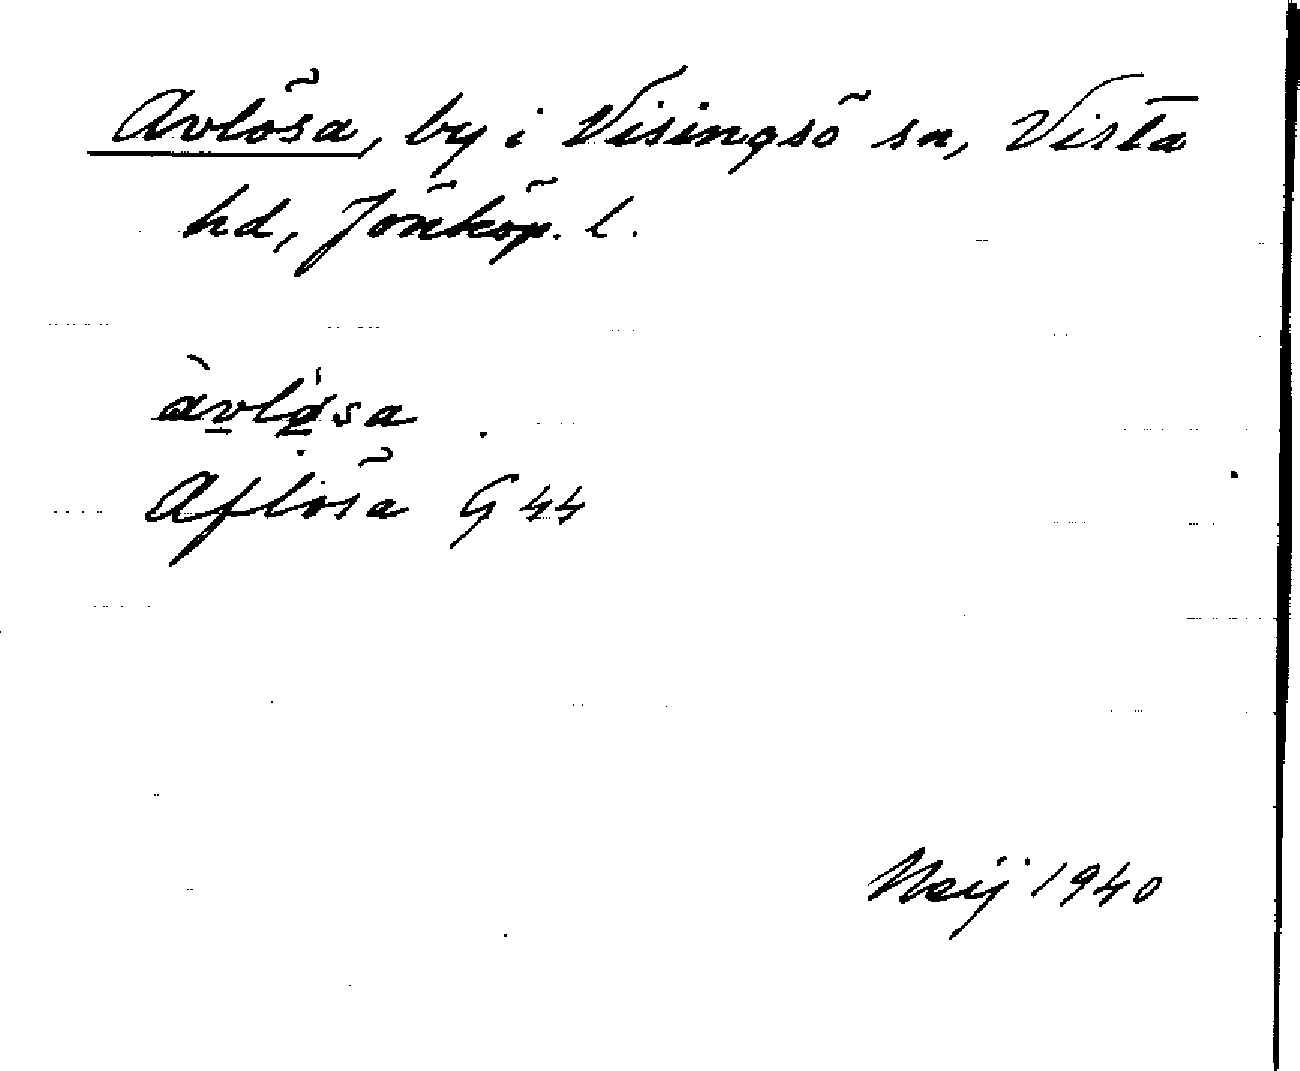 Avlösa, by i Visingsö sn, Vista
hd, Jönköp. l.
àvlø̀sa.
Aflösa G 44
Neij 1940